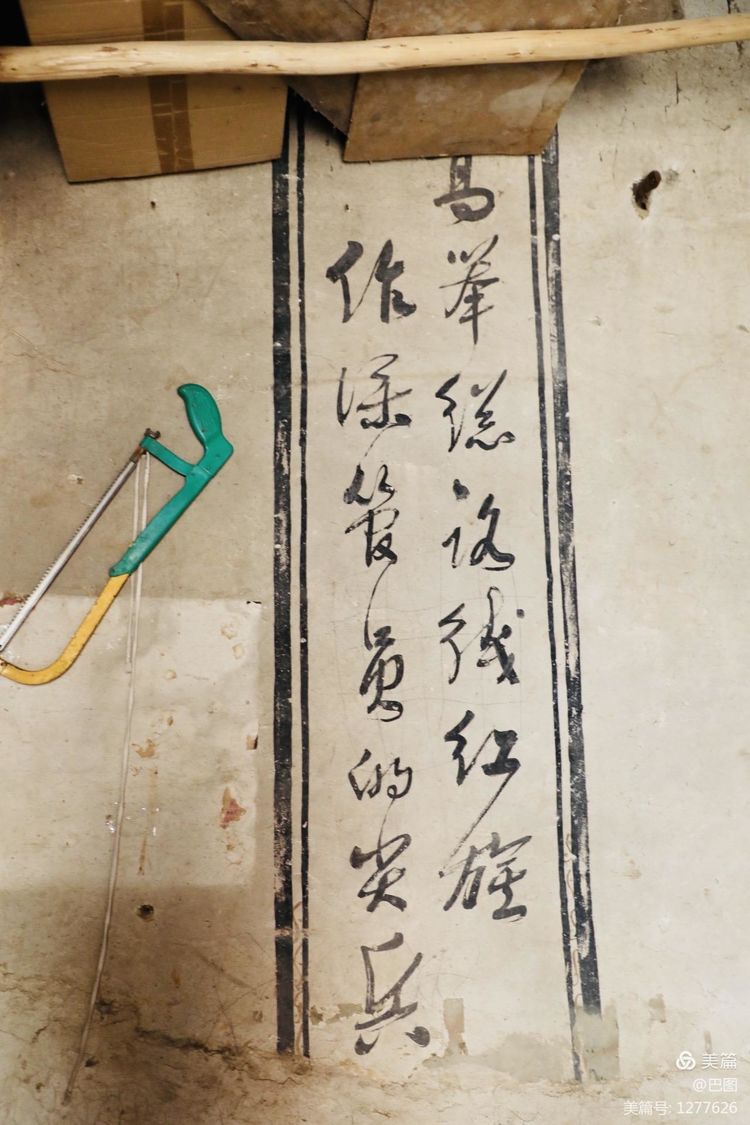 高举總路綫红旗
作保管員的尖兵
美篇
@巴图
美篇号: 1277626